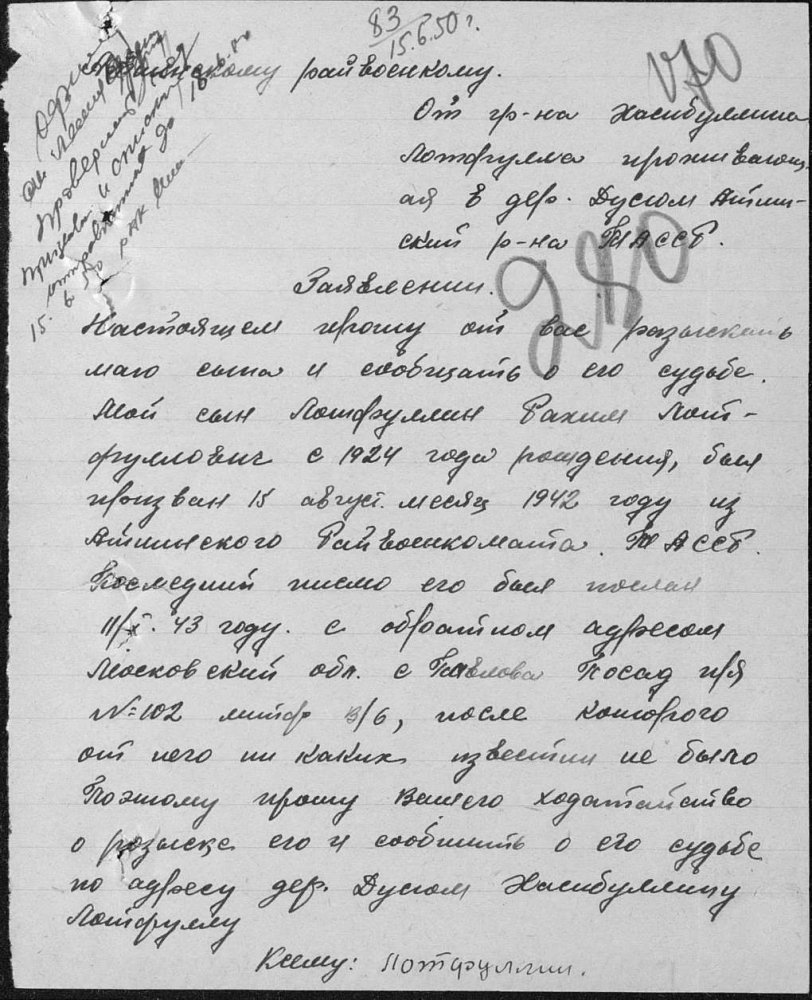 83
15.6.50 г.
райвоенкому.
От гр-на Хасибуллина
Лотфулла проживающ-
ая в дер. Дусюм Атнин-
ский р-на ТАССР.
280
Заявлении.
Настоящем прошу от вас разыскать
маго сына и сообщать о его судьбе.
Мой сын Лотфуллин Рахим Лот-
фуллович с 1924 года рождения, был
призван 15 август. месяц 1942 году из
Атнинского Райвоенкомата. ТАССР.
Последний писмо его был послан
43 году. с обратном адресом
Московский обл. с Павлова Посад п/я
№ 102 литф /6, после которого
от него ни каких известии не было
Поэтому прошу Вашего ходатайство
о розыске его и сообшить о его судьбе
по адресу дер. Дусюм Хасибуллину
Лотфуллу
К сему: Лотфуллин.